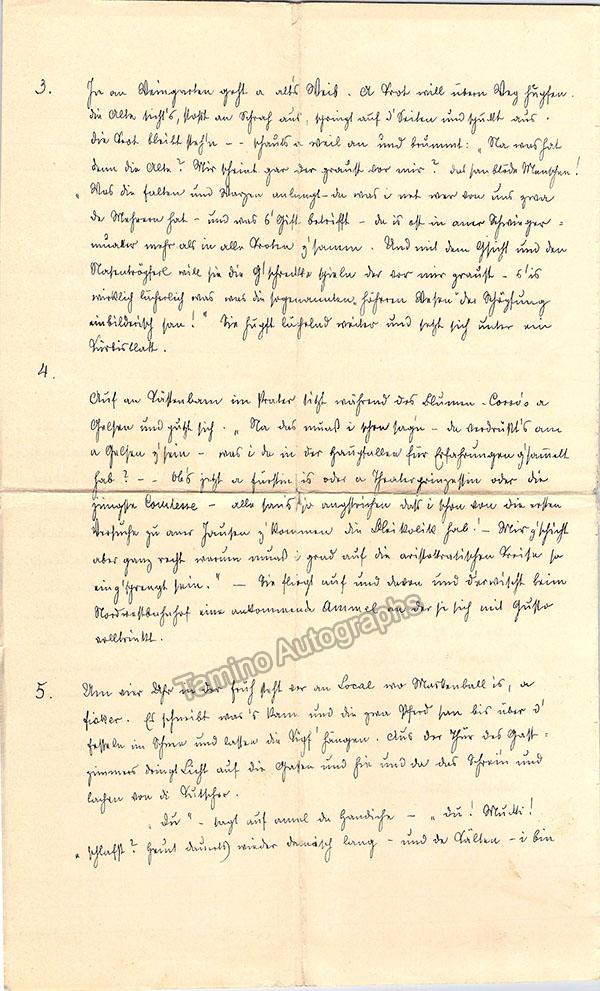 3. In an Weingarten geht a alt's Weib. A Krot will übern Weg hupfen.
die Alte sicht's, stoßt an Schrah aus, springt auf d' Seiten und spukt aus.
die Krot bleibt steh'n -- schauts a weil an und brummt: „Na was hat
denn die Alte? Mir scheint gar der graust vor mir? das san blöde Menschen!
„Was die falten und Warzen anlangt - da was i net wer von uns zwa
de Mehrern hat - und was 's Gift betrifft - da is oft in aner Schwieger=
muater mehr als in alle Kroten z'samm. Und mit dem G'sicht und den
Nasentröpferl will sie die G'schreckte spieln der vor mir graust - s'is
wirklich lächerlich was was die sogenannten „höheren Wesen" der Schöpfung
einbilderisch san!" Sie hupft lächelnd weiter und setzt sich unter ein
Kürbisblatt.
4.
Auf an Kästenbam im Prater sitzt während des Blumen-Corso's a
Gelsen und putzt sich. „Na das muaß i schon sag'n - da verdrießt's am
a Gelsen z'sein - was i da in der Hauptallee für Erfahrungen g'sammelt
hab? -- Ob's jetzt a Fürstin is oder a Theaterprinzessin oder die
jüngste Comtesse - alle san's so angstrichen daß i schon von die ersten
Versuche zu aner Jausen z'kommen die Bleikolik hab! - Mir g'schicht
aber ganz recht warum muaß i grad auf die aristokratischen Kreise so
eing'sprengt sein." - Sie fliegt auf und davon und derwischt beim
Nordwestbahnhof eine ankommende Ammel an der sie sich mit Gusto
volltrinkt.
Tamino Autographs
5. Um vier Uhr in der fruh steht vor an Local wo Maskenball is, a
fiaker. Es schneibt was 's kann und die zwa Pferd san bis über d'
fesseln im Schnee und lassen die Köpf' hängen. Aus der Thür des Gast=
zimmers dringt Licht auf die Gassen und hie und da das Schrein und
lachen von di Kutscher.
„Du" - sagt auf amal da Handiche - „Du! Mucki!
„schlafst? heunt dauerts wieder damisch lang - und de Kälten - i bin